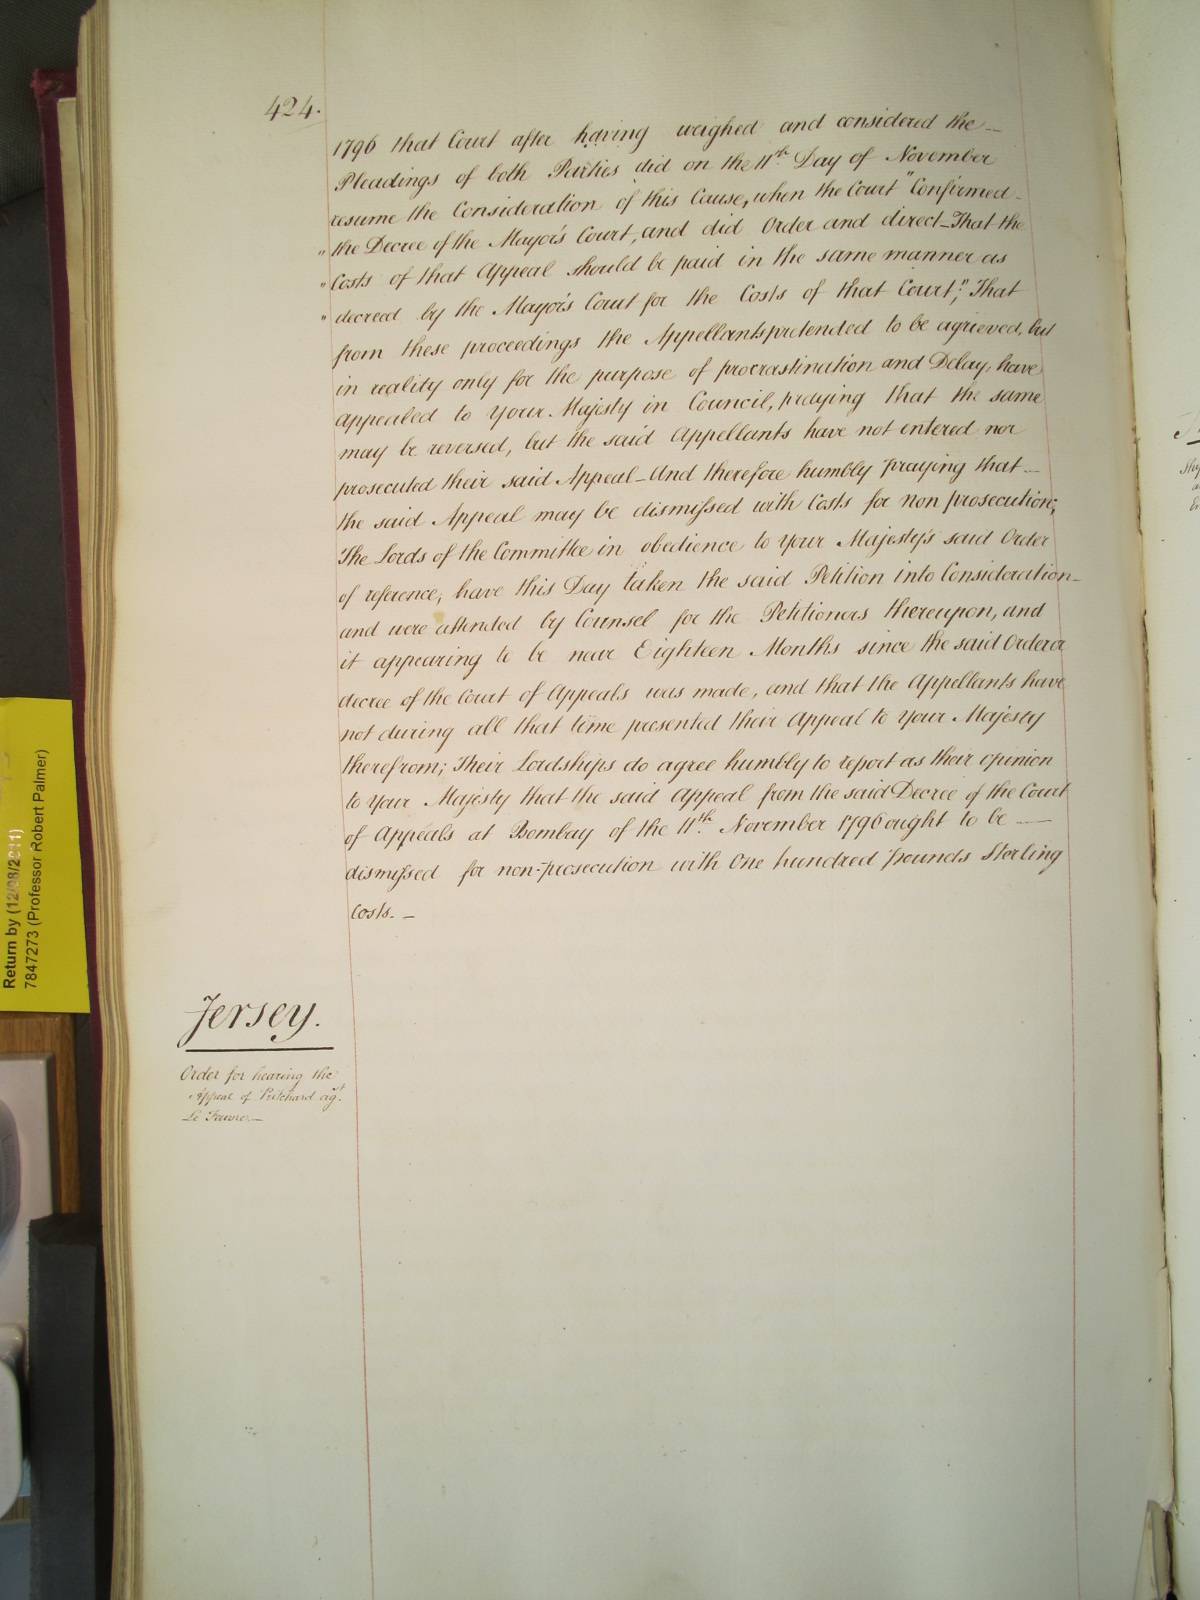 424.
1796 that Court after having weighed and considered the
Pleadings of both Parties did on the 11th. Day of November
resume the Consideration of this Cause, when the Court "Confirmed
" the Decree of the Mayor's Court, and did Order and direct_That the
" Costs of that Appeal should be paid in the same manner as
" decreed by the Mayor's Court for the Costs of that Court"; That
from these proceedings the Appellants pretended to be agrieved, but
in reality only for the purpose of procrastination and Delay, have
appealed to Your Majesty in Council, praying that the same
may be reversed, but the said Appellants have not entered nor
prosecuted their said Appeal_And therefore humbly praying that_
the said Appeal may be dismissed with Costs for non prosecution;
The Lords of the Committee in obedience to Your Majesty's said Order
of reference, have this Day taken the said Petition into Consideration_
and were attended by Counsel for the Petitioners thereupon, and
it appearing to be near Eighteen Months since the said Order or
decree of the Court of Appeals was made, and that the Appellants have
not during all that time presented their Appeal to Your Majesty
therefrom; Their Lordships do agree humbly to report as their opinion
to Your Majesty that the said Appeal from the said Decree of the Court
of Appeals at Bombay of the 11th. November 1796 ought to be __
dismissed for non-prosecution with One hundred pounds Sterling
Costs. _
Jersey.
Order for hearing the
Appeal of Pritchard agt.
Le
Return by (12/08/2011)
7847273 (Professor Robert Palmer)